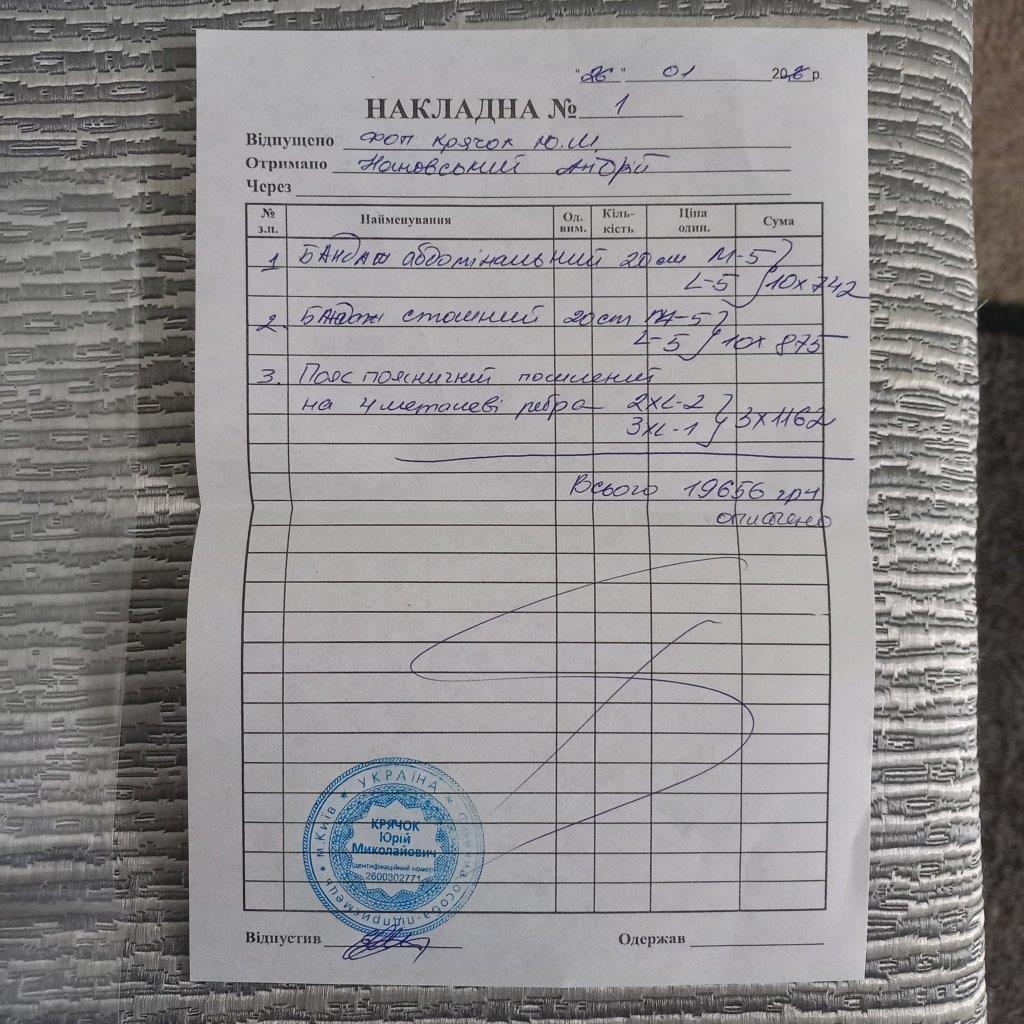 "26" 01 2026 р.
НАКЛАДНА № 1
Відпущено ФОП Крячок Ю.М.
Отримано Нановський Андрій
Через
№ з.п. Найменування Од. вим. Кіль-кість Ціна один. Сума
1 Бандаж абдомінальний 20см M-5
L-5 10x742
2. Бандаж стомний 20см M-5
L-5 10x 875
3. Пояс поясничний посилений
на 4 металеві ребра 2XL-2
3XL-1 3x1162
Всього 19656 грн
оплачено
УКРАЇНА * Фізична особа-підприємець * м.Київ *
КРЯЧОК
Юрій
Миколайович
ідентифікаційний номер
2600302771
Відпустив
Одержав